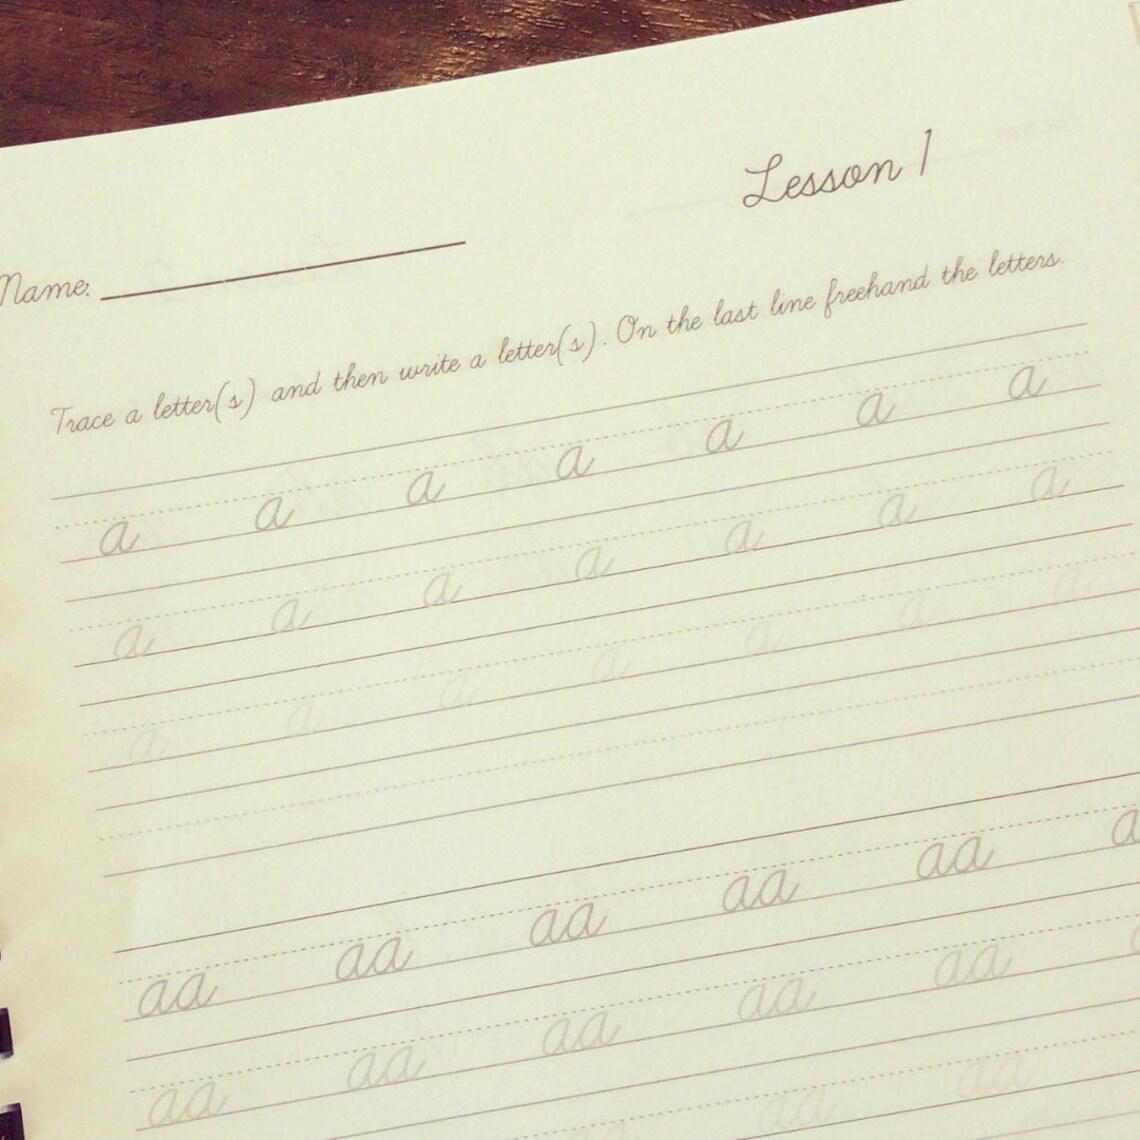 Lesson 1
Name:
Trace a letter(s) and then write a letter(s). On the last line freehand the letters.
a a a a a a a
a a a a a a a
a a a a a a a
aa aa aa aa aa a
aa aa aa aa aa
aa aa